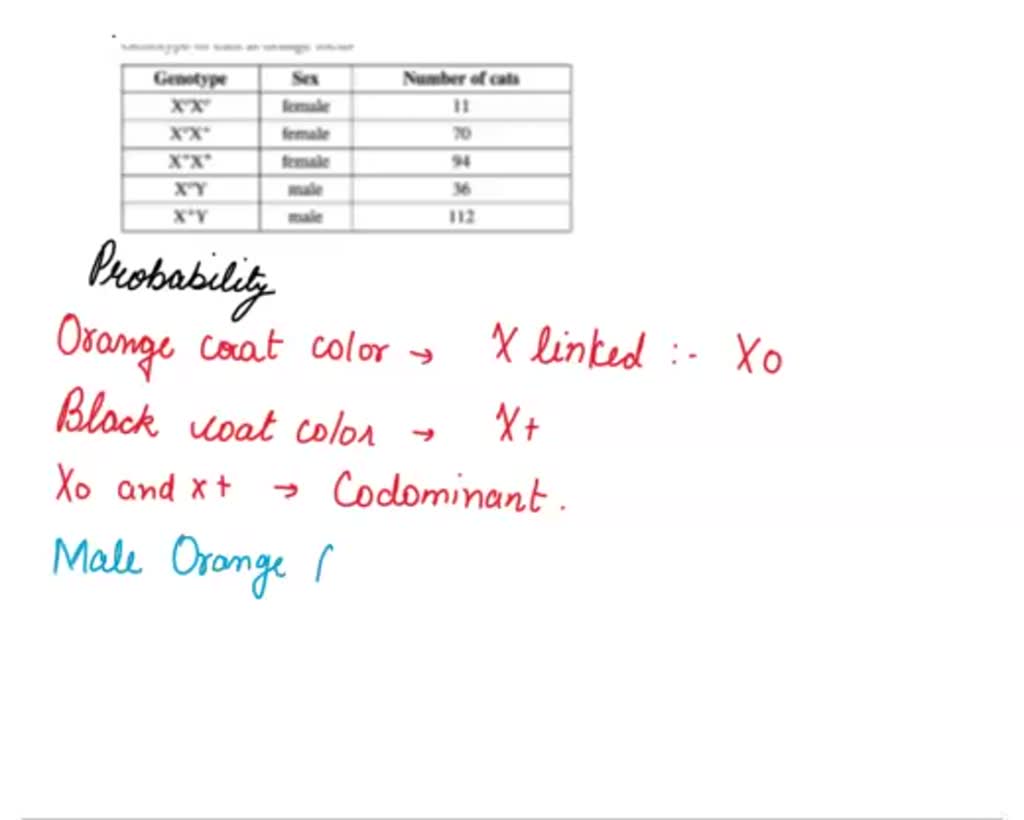 Genotype Sex Number of cats
X°X° female 11
X°X⁺ female 70
X⁺X⁺ female 94
X°Y male 36
X⁺Y male 112
Probability
Orange coat color → X linked :- Xo
Black coat color → X+
Xo and x+ → Codominant.
Male Orange (